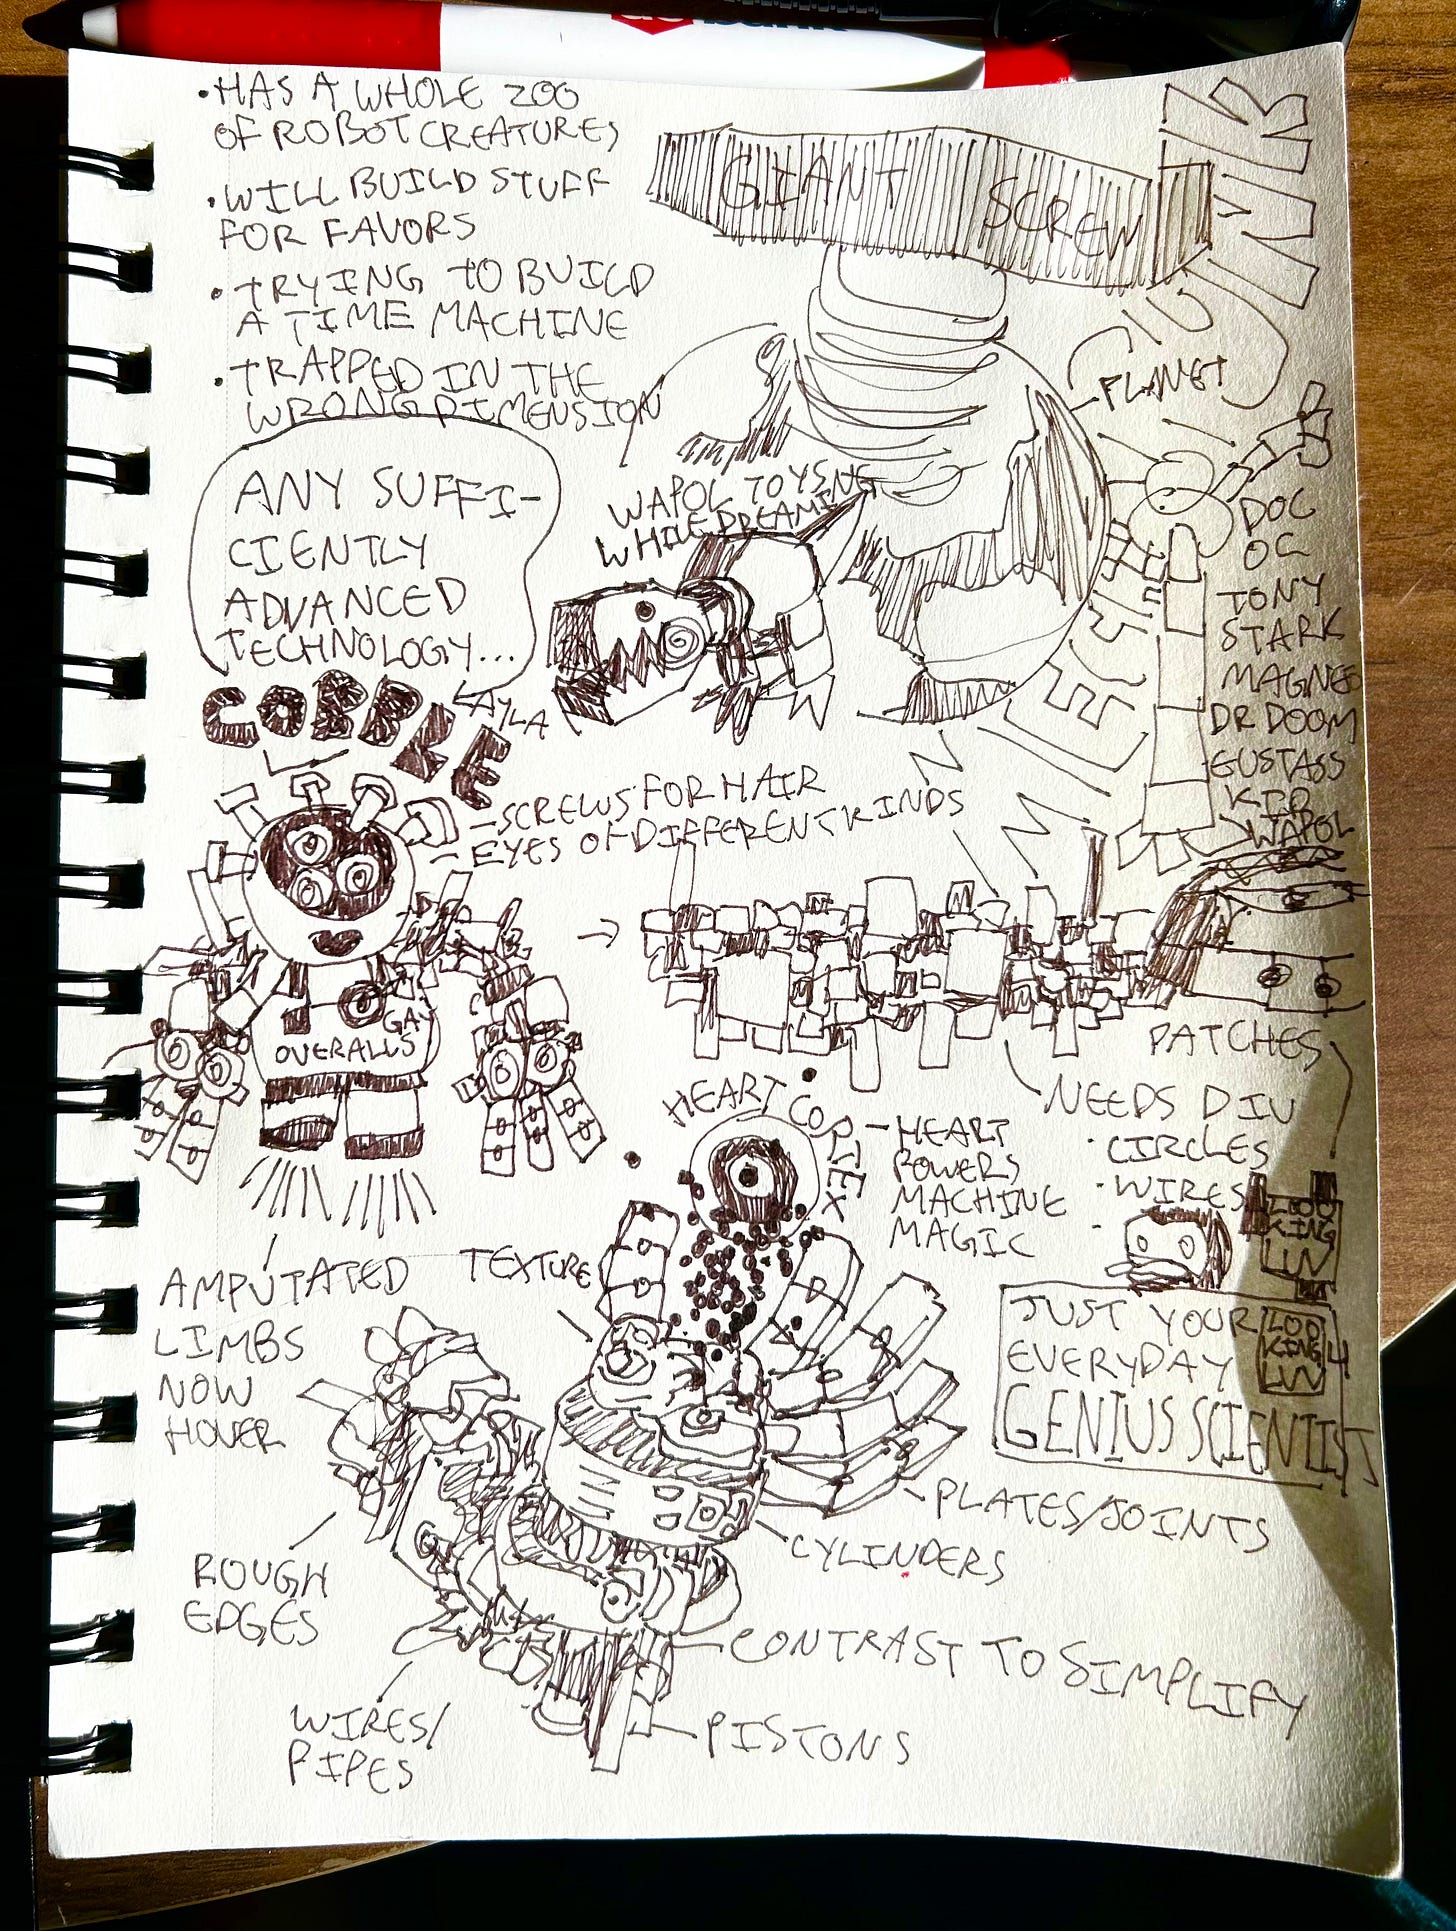 •HAS A WHOLE ZOO
OF ROBOT CREATURES
•WILL BUILD STUFF
FOR FAVORS
•TRYING TO BUILD
A TIME MACHINE
•TRAPPED IN THE
WRONG DIMENSION
GIANT SCREW
PLANET
ANY SUFFI-
CIENTLY
ADVANCED
TECHNOLOGY...
WAPOL TOYSNG
WHILE DREAMING
DOC
OC
TONY
STARK
MAGNEO
DR DOOM
EUSTASS
KID
WAPOL
COBBLE
KAYLA
-SCREWS FOR HAIR
-EYES OF DIFFERENT KINDS
GAY
OVERALLS
PATCHES
NEEDS DIV
•CIRCLES
•WIRES
HEART CORTEX
-HEART
POWERS
MACHINE
MAGIC
AMPUTATED
LIMBS
NOW
HOVER
TEXTURE
LOO
KING
LUV
JUST YOUR
EVERYDAY
GENIUS SCIENTIST
LOO
KING4
LUV
PLATES/JOINTS
CYLINDERS
ROUGH
EDGES
CONTRAST TO SIMPLIFY
WIRES/
PIPES
PISTONS